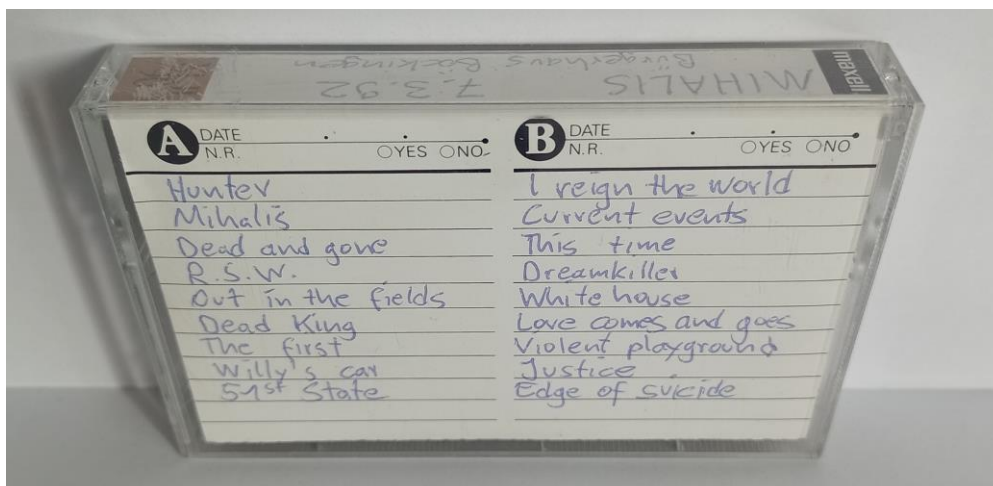 maxell
MIHALIS 7.3.92
Bürgerhaus Böckingen
A DATE
N.R. YES NO
Hunter
Mihalis
Dead and gone
R.S.W.
Out in the fields
Dead King
The first
Willy's car
51st State
B DATE
N.R. YES NO
I reign the world
Current events
This time
Dreamkiller
White house
Love comes and goes
Violent playground
Justice
Edge of suicide